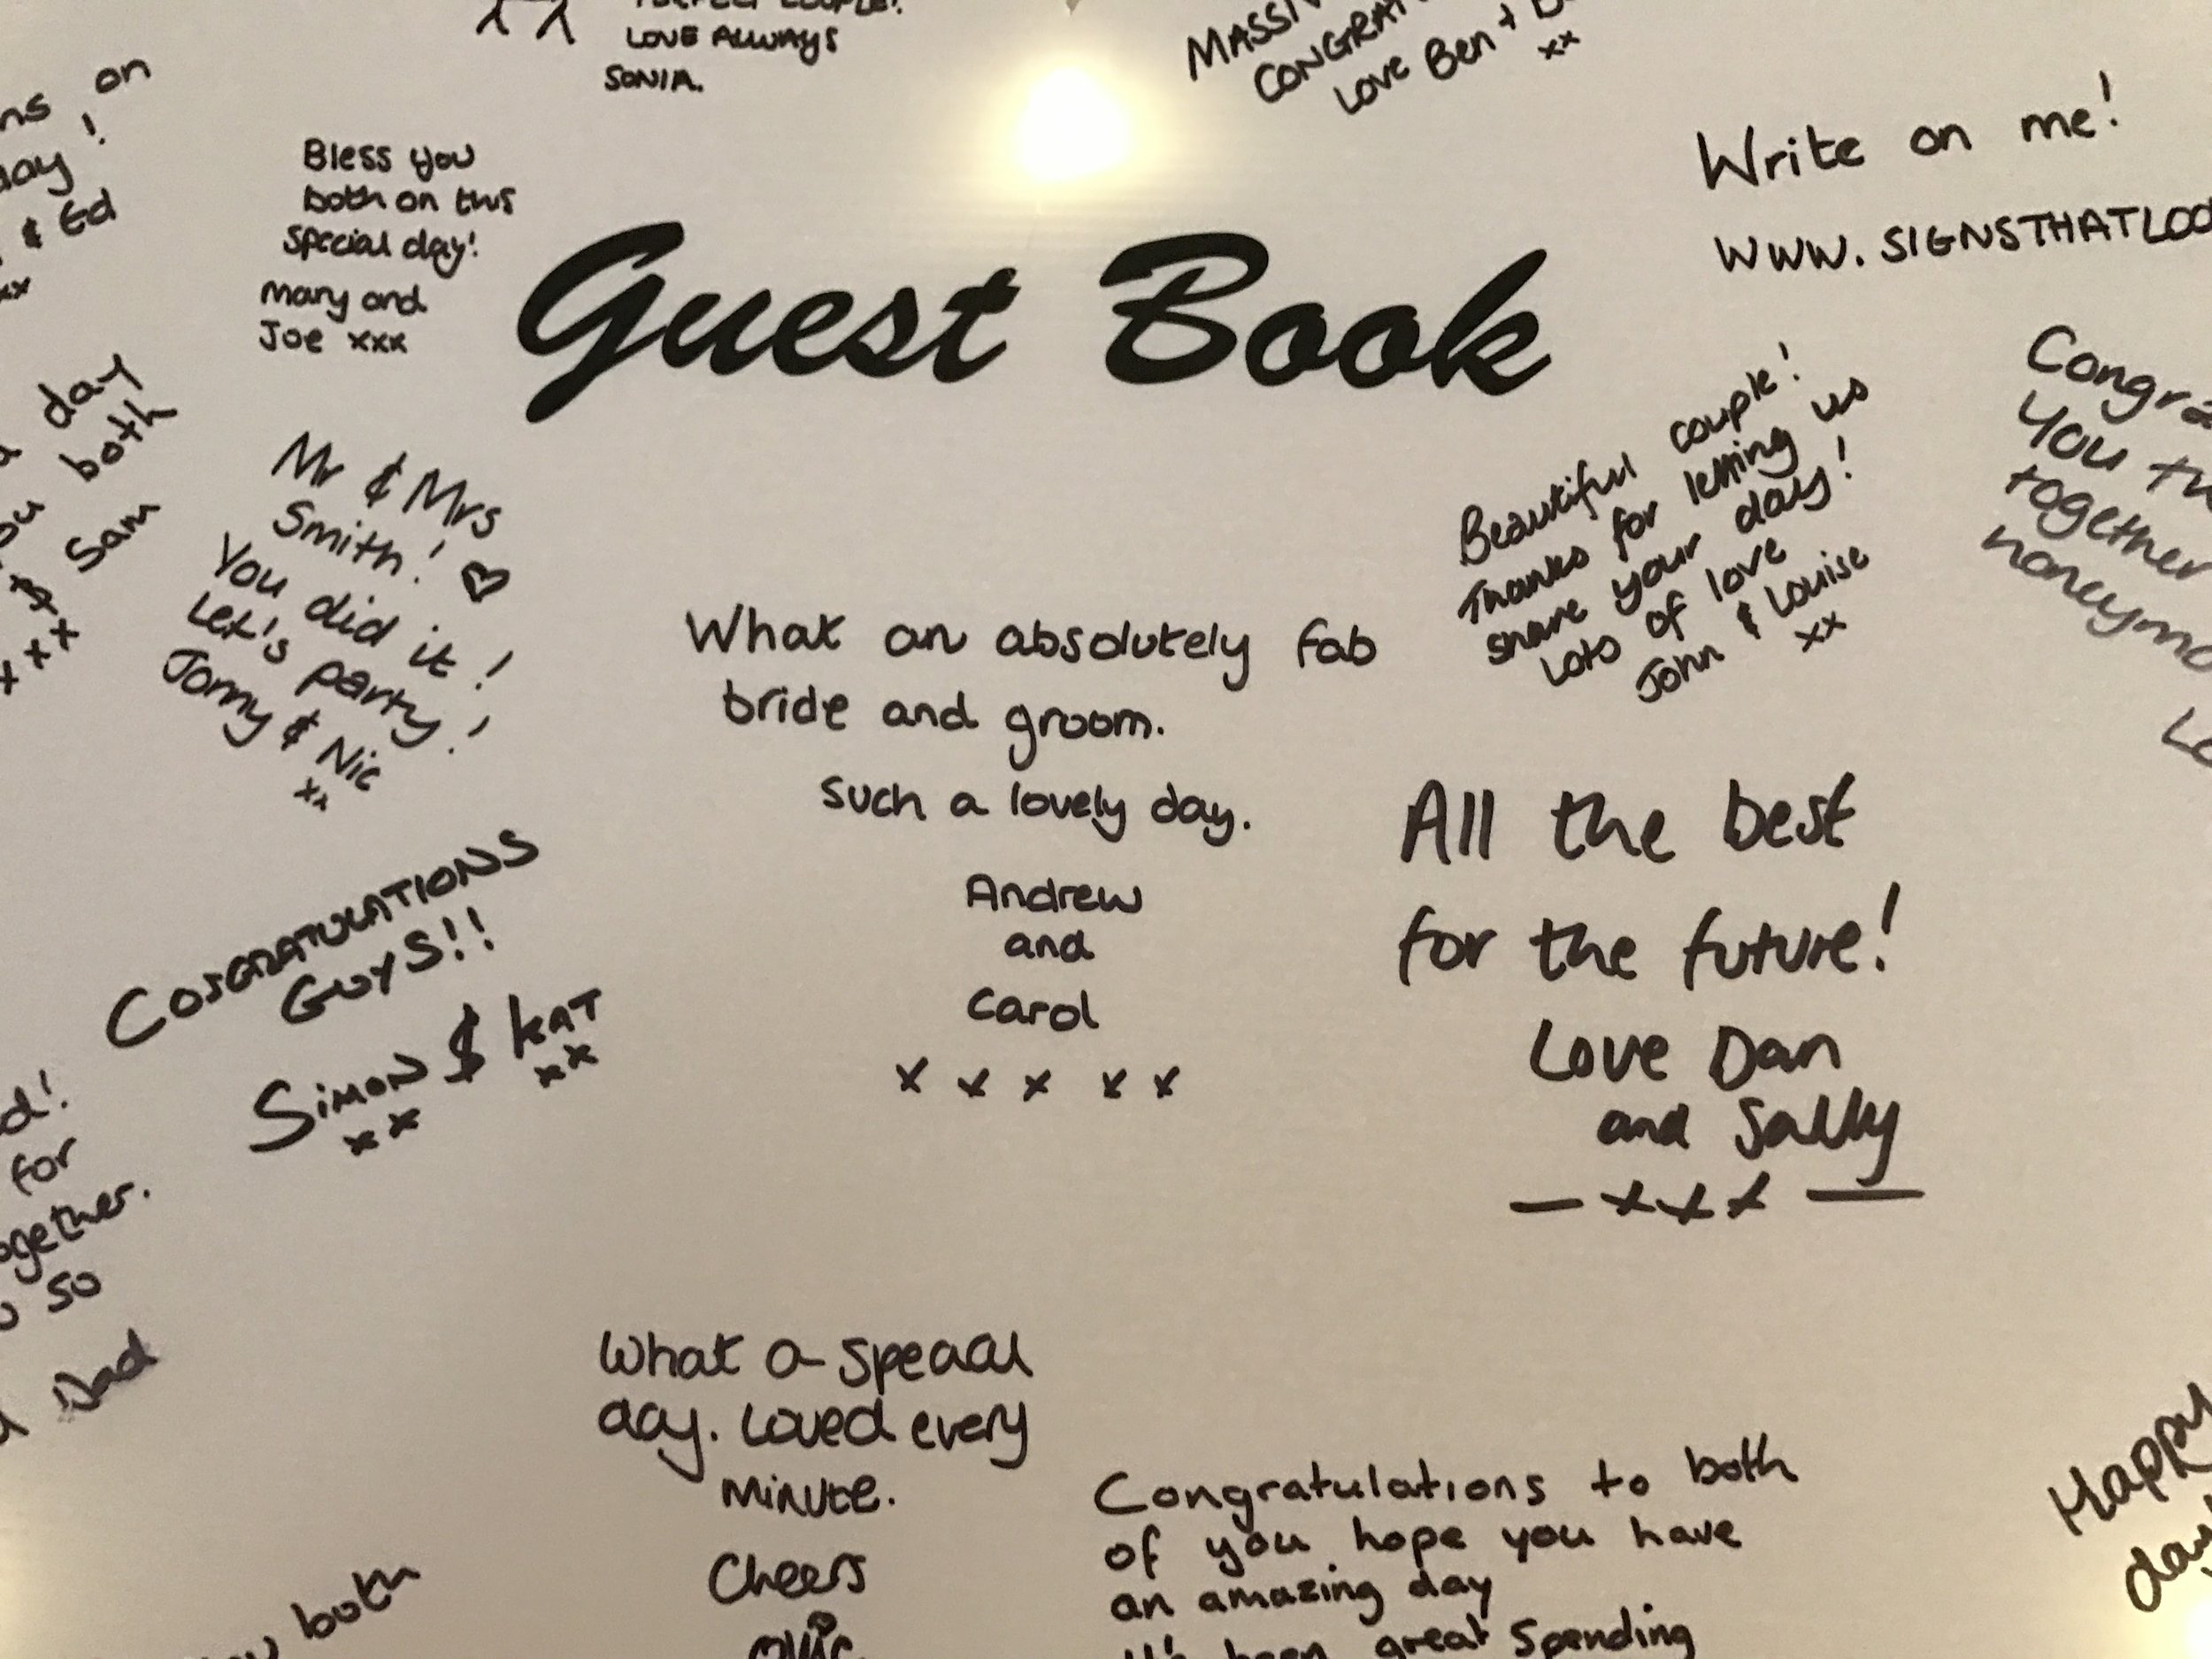 LOVE ALWAYS
SONIA.
CONGRAT
Love Ben +
xx
on
day!
& Ed
xx
Bless you
both on this
special day!
Mary and
Joe xxx
Guest Book
Write on me!
WWW.SIGNSTHATLOO
day
both
& Sam
xxx
Mr & Mrs
Smith! ♡
You did it!
Let's party!
Jonny & Nic
xx
Beautiful couple!
Thanks for letting us
share your day!
Lots of love
John & Louise
xx
Congra
You tw
together
honeymo
What an absolutely fab
bride and groom.
such a lovely day.
Andrew
and
Carol
x x x x x
All the best
for the future!
Love Dan
and Sally
— x x x —
CONGRATULATIONS
GUYS!!
SIMON & KAT
xx xx
for
ogether.
so
Dad
What a special
day. Loved every
minute.
Cheers
Congratulations to both
of you hope you have
an amazing day
It's been great spending
both
Happy
day